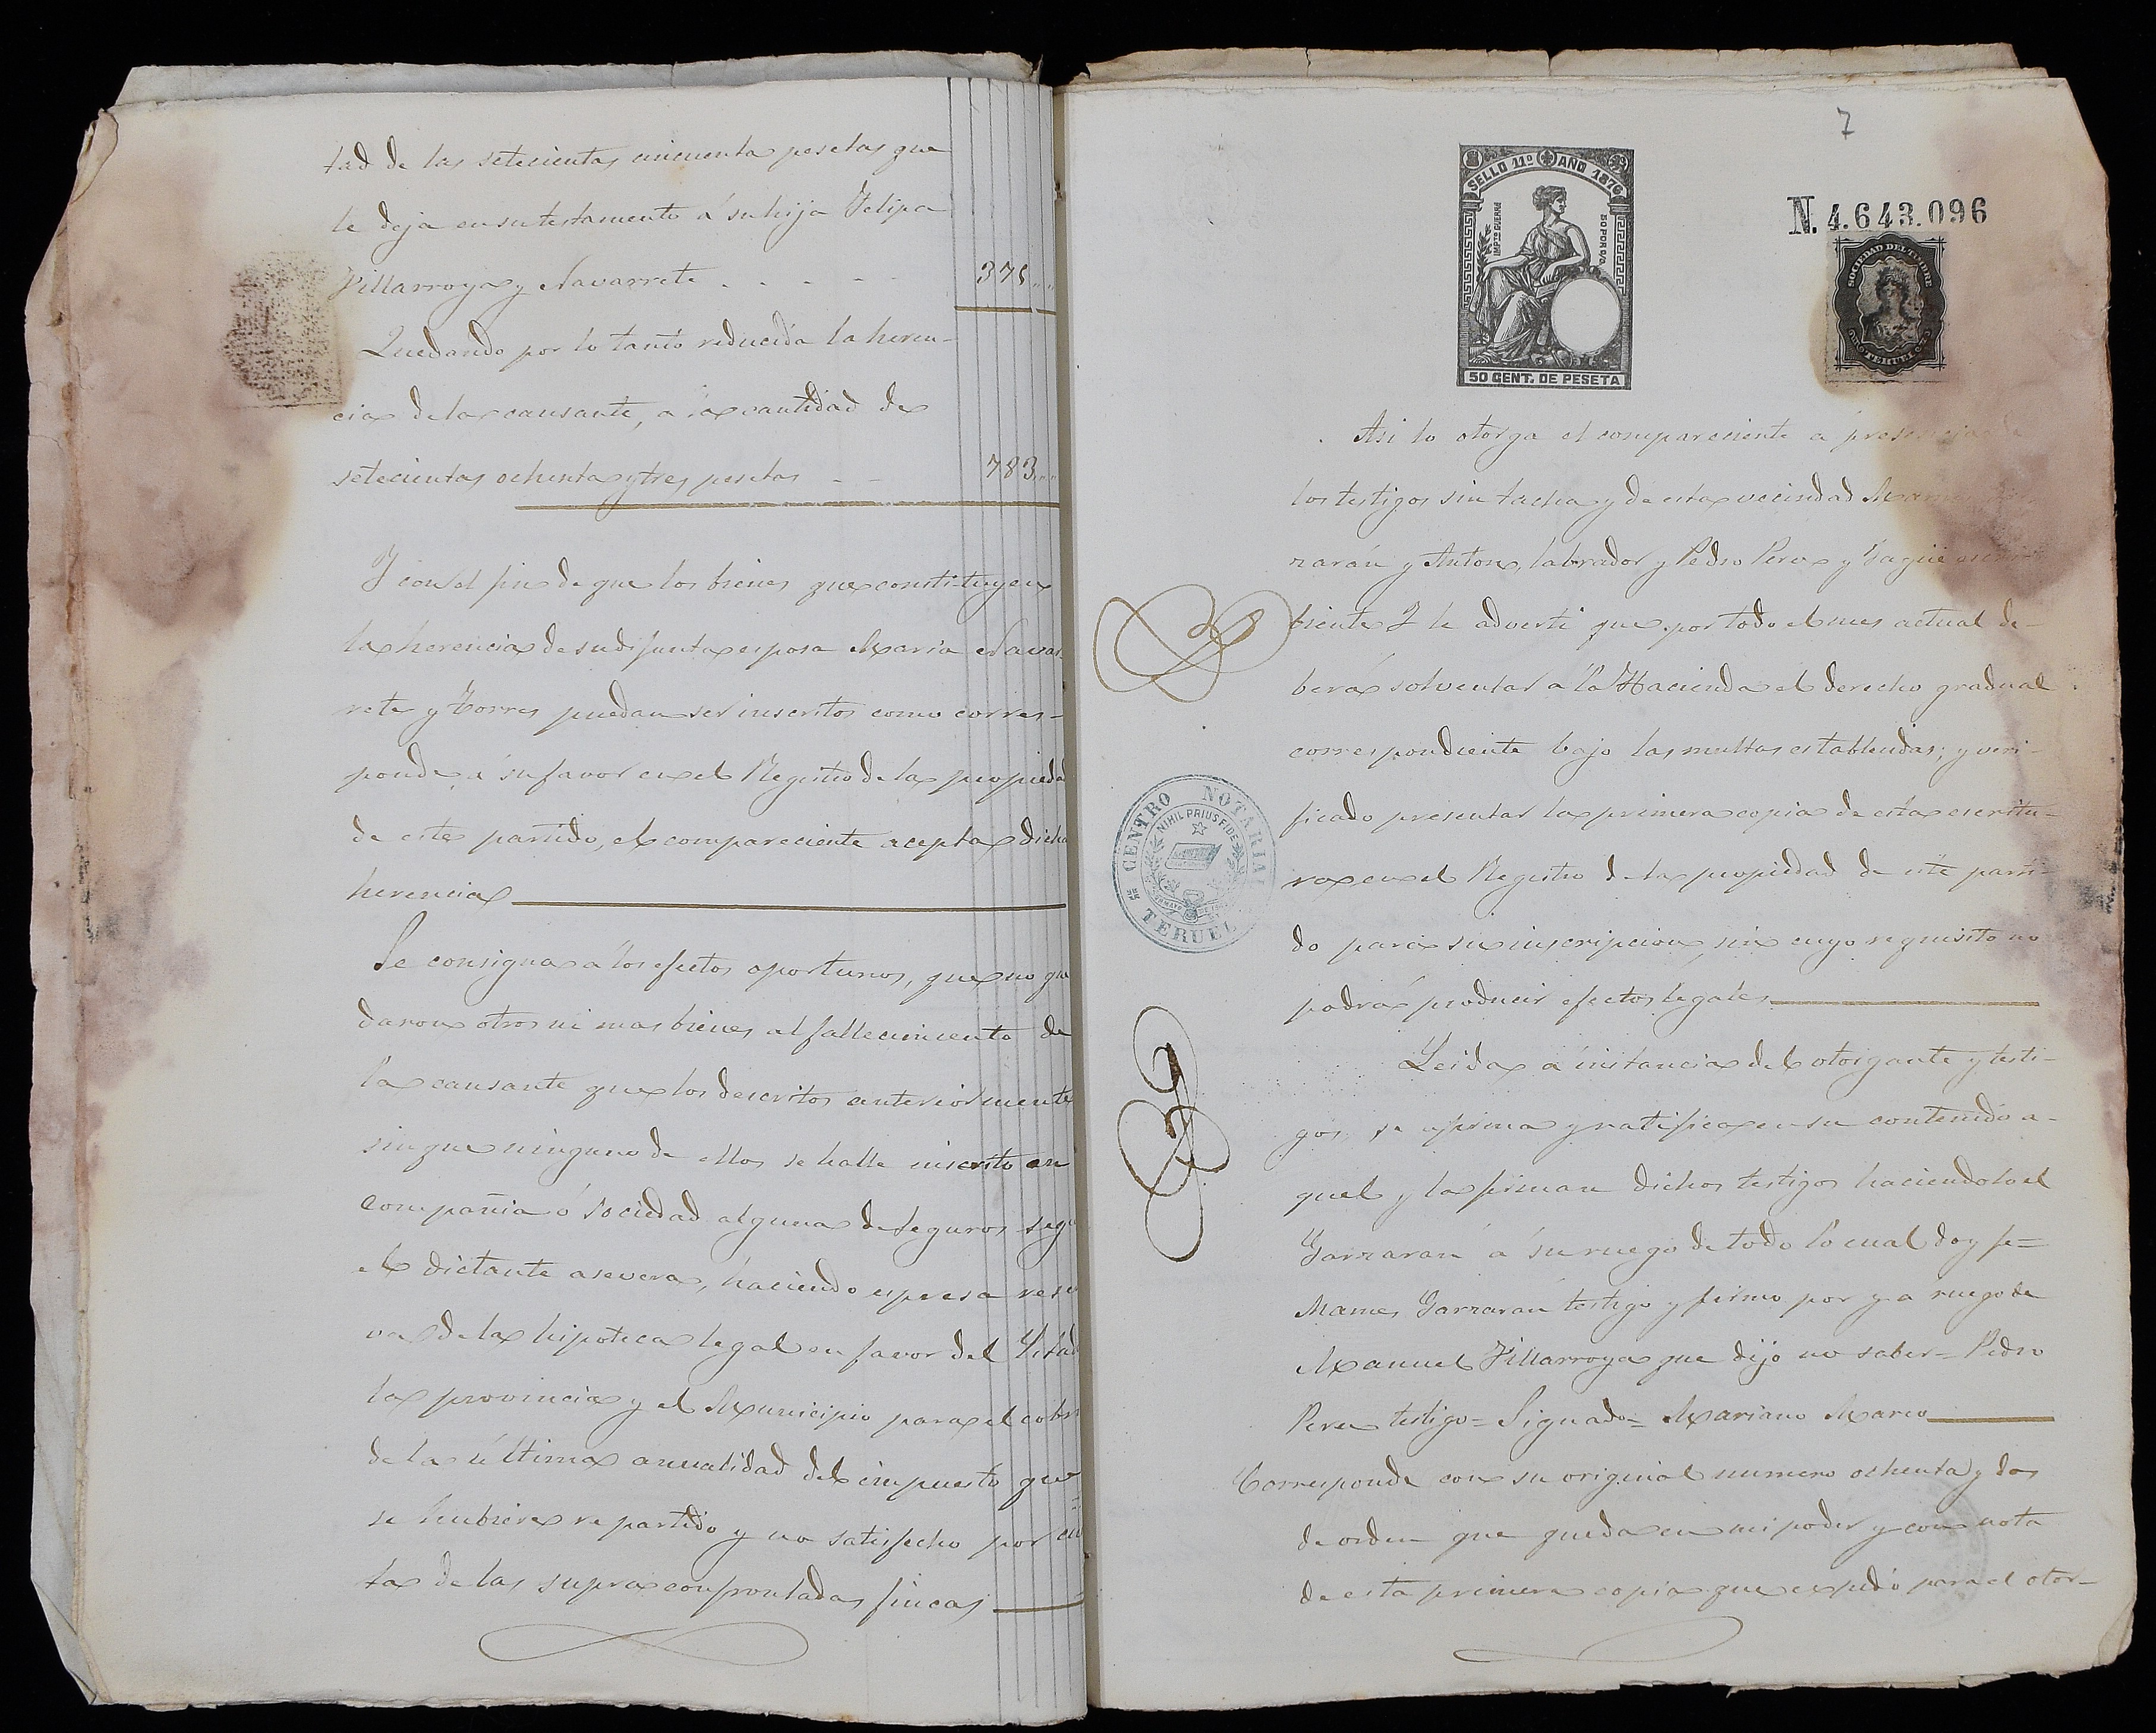 tad de las setecientas cincuenta pesetas que
le deja en su testamento á su hija Felipa
Villarroya y Navarrete . . . . - 375
Quedando por lo tanto reducida la heren-
cia de la causante, a la cantidad de
setecientas ochenta y tres pesetas - - 783
Y con el fin de que los bienes que constituyen
la herencia de su difunta esposa Maria Navar
rete y Torres puedan ser inscritos como corres-
ponde á su favor en el Registro de la propiedad
de este partido, el compareciente acepta dicha
herencia
Se consigna a los efectos oportunos, que no que
daron otros ni mas bienes al fallecimiento de
la causante que los descritos anteriormente
sin que ninguno de ellos se halle inscrito en
compañia ó sociedad alguna de seguros segu
el dictante asevera, haciendo espresa reser
va de la hipoteca legal en favor del Estado
la provincia y el Municipio para el cobro
de la última anualidad del impuesto que
se hubiere repartido y no satisfecho por cu
ta de las supraconfrontadas fincas
7
SELLO 11º AÑO 1876
IMPTO DE GUERRA
50 POR 0/0
50 CENT. DE PESETA
N. 4.643.096
SOCIEDAD DEL TIMBRE
Asi lo otorga el compareciente a presencia de
los testigos sin tacha y de esta vecindad Mam
zarán y Anton, labrador y Pedro Perez y Yagüe escri
biente Y le adverti que por todo el mes actual de-
berá solventar a la Hacienda el derecho gradual
correspondiente bajo las multas establecidas; y veri-
ficado presentar la primera copia de esta escritu-
ra en el Registro de la propiedad de este parti-
do para su inscripcion, sin cuyo requisito no
podrá producir efectos legales
Leida a instancia del otorgante y testi-
gos, se afirma y ratifica en su contenido a-
quel y la firman dichos testigos haciendolo el
Garzarán á su ruego de todo lo cual doy fe=
Mames Garzarán testigo y firmo por y a ruego de
Manuel Villarroya que dijo no saber= Pedro
Perez testigo= Signado= Mariano Marco
Corresponde con su original numero ochenta y dos
de orden que queda en mi poder y con nota
de esta primera copia que expido para el otor-
CENTRO NOTARIAL
NIHIL PRIUS FIDE
DE TERUEL